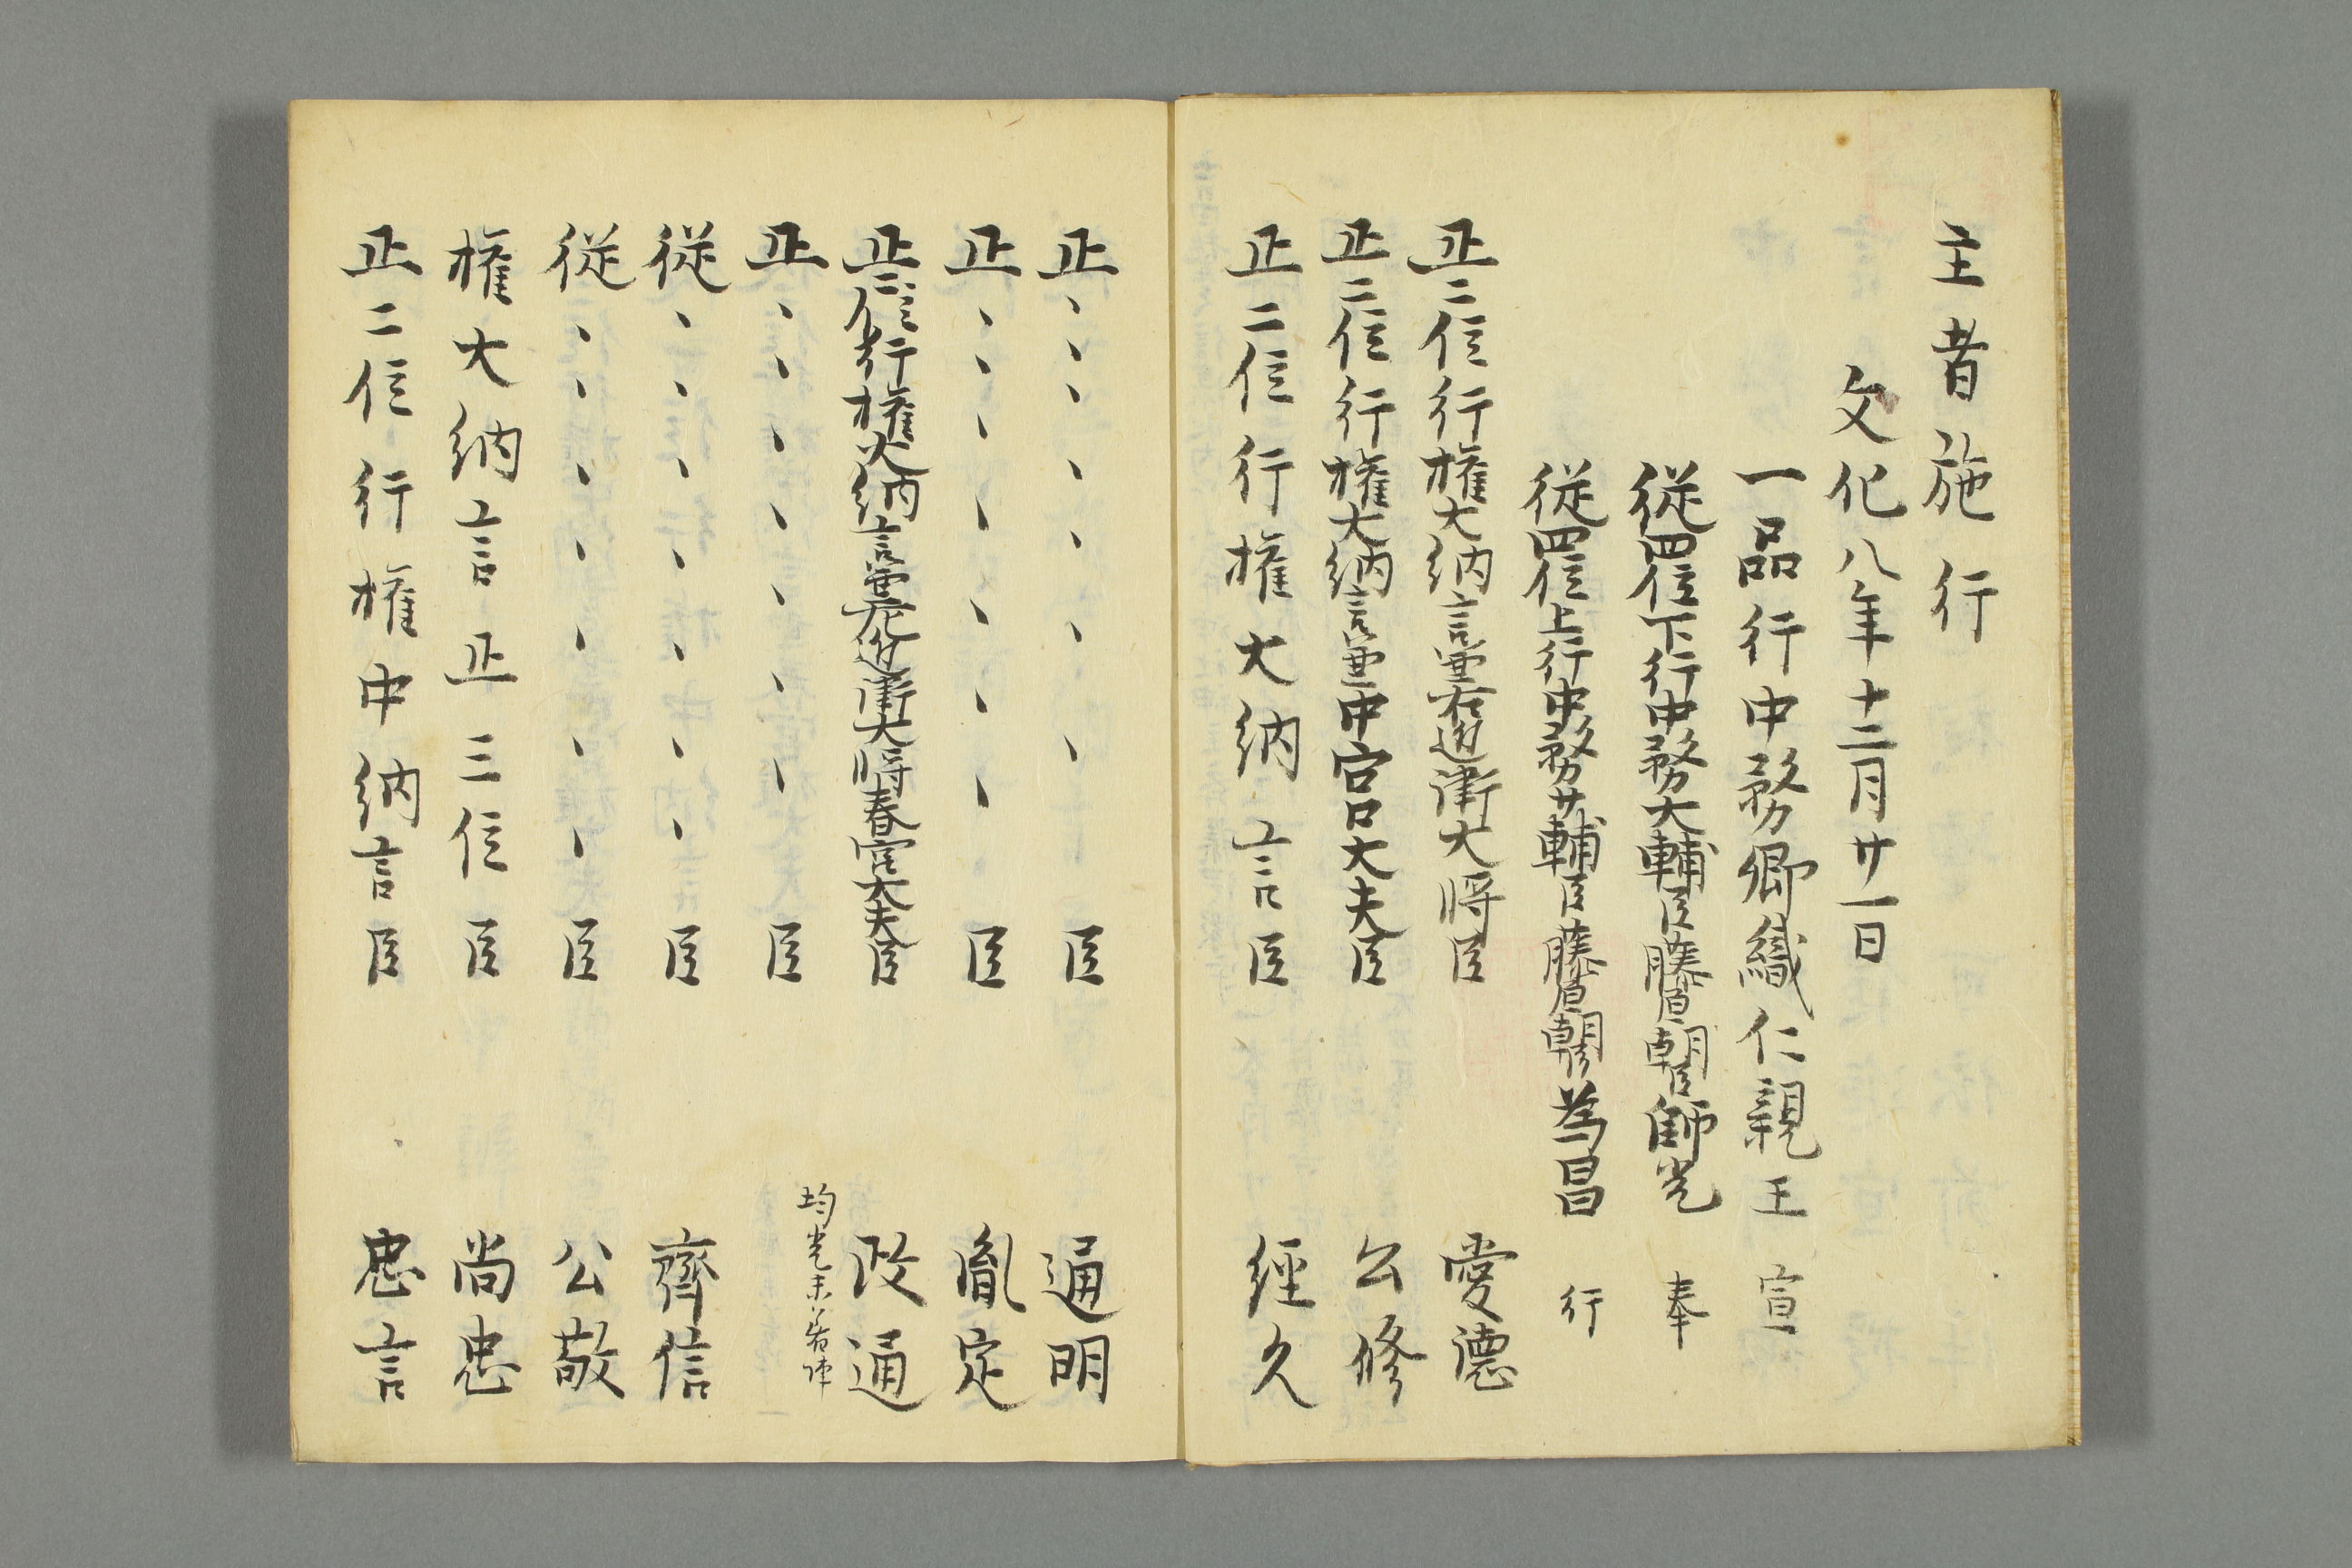 主者施行
文化八年十二月廿一日
一品行中務卿織仁親王 宣
従四位下行中務大輔臣藤原朝臣師光 奉
従四位上行中務少輔臣藤原朝臣為昌 行
正二位行権大納言兼右近衛大将臣 愛徳
正二位行権大納言兼中宮大夫臣 公修
正二位行権大納言臣 經久
正、、、、、、、臣 通明
正、、、、、、、臣 胤定
正二位行権大納言兼左近衛大将春宮大夫臣 政通
正、、、、、、、臣 均光未著陣
従、、、、、、、臣 齊信
従、、、、、、、臣 公敬
権大納言正三位臣 尚忠
正二位行権中納言臣 忠言